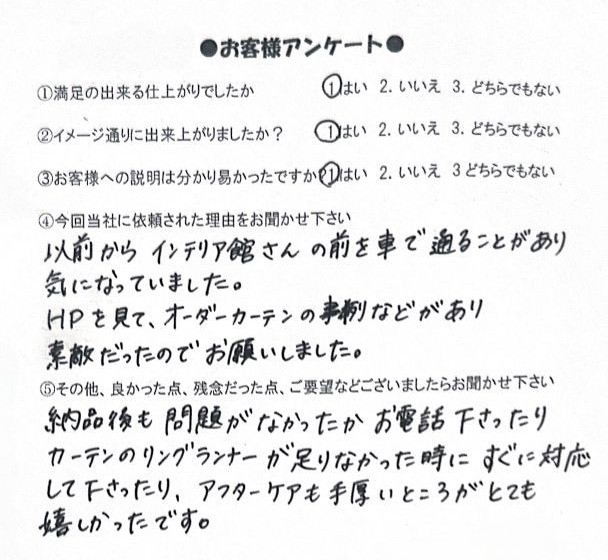 ●お客様アンケート●
①満足の出来る仕上がりでしたか 1はい 2. いいえ 3. どちらでもない
②イメージ通りに出来上がりましたか？ 1はい 2. いいえ 3. どちらでもない
③お客様への説明は分かり易かったですか 1はい 2. いいえ 3 どちらでもない
④今回当社に依頼された理由をお聞かせ下さい
以前から インテリア館さん の前を車で通ることがあり
気になっていました。
HPを見て、オーダーカーテンの事例などがあり
素敵だったのでお願いしました。
⑤その他、良かった点、残念だった点、ご要望などございましたらお聞かせ下さい
納品後も問題がなかったかお電話下さったり
カーテンのリングランナーが足りなかった時にすぐに対応
して下さったり、アフターケアも手厚いところがとても
嬉しかったです。